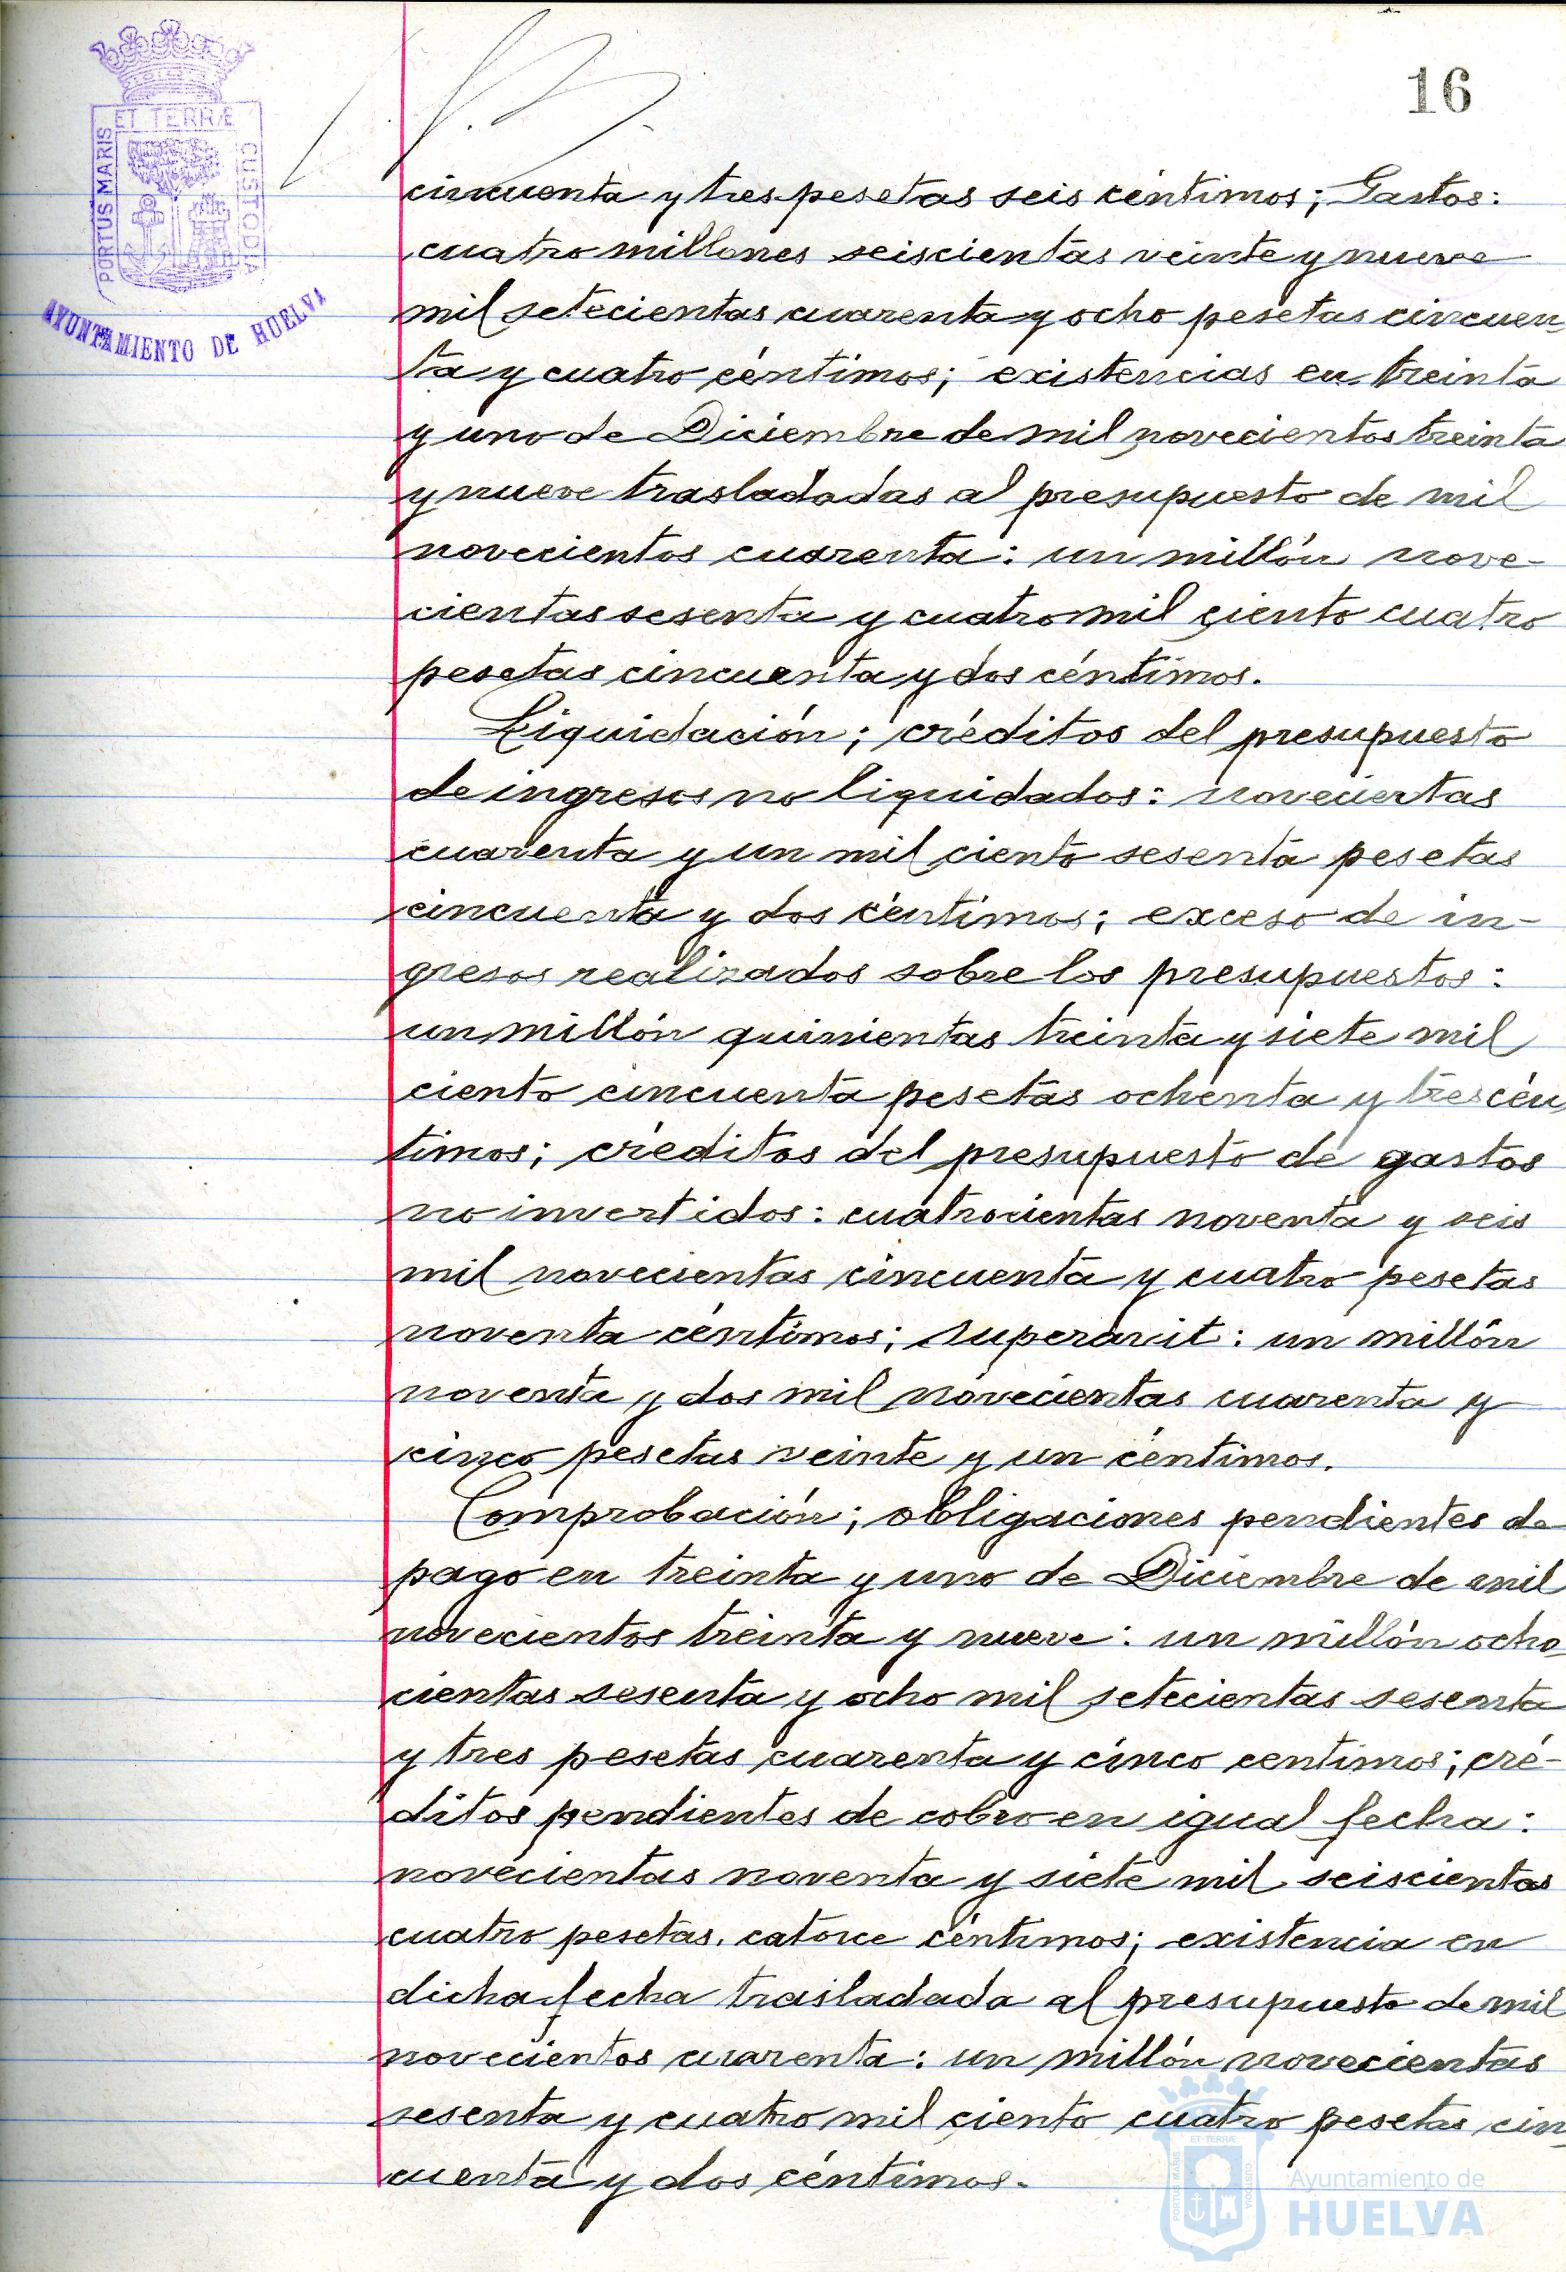 16
ET TERRÆ
PORTUS MARIS
CUSTODIA
AYUNTAMIENTO DE HUELVA
cincuenta y tres pesetas seis céntimos; Gastos:
cuatro millones seiscientas veinte y nueve
mil setecientas cuarenta y ocho pesetas cincuen
ta y cuatro céntimos; existencias en treinta
y uno de Diciembre de mil novecientos treinta
y nueve trasladadas al presupuesto de mil
novecientos cuarenta: un millón nove-
cientas sesenta y cuatro mil ciento cuatro
pesetas cincuenta y dos céntimos.
Liquidación; créditos del presupuesto
de ingresos no liquidados: novecientas
cuarenta y un mil ciento sesenta pesetas
cincuenta y dos céntimos; exceso de in-
gresos realizados sobre los presupuestos:
un millón quinientas treinta y siete mil
ciento cincuenta pesetas ochenta y tres cén
timos; créditos del presupuesto de gastos
no invertidos: cuatrocientas noventa y seis
mil novecientas cincuenta y cuatro pesetas
noventa céntimos; superavit: un millón
noventa y dos mil novecientas cuarenta y
cinco pesetas veinte y un céntimos.
Comprobación; obligaciones pendientes de
pago en treinta y uno de Diciembre de mil
novecientos treinta y nueve: un millón ocho
cientas sesenta y ocho mil setecientas sesenta
y tres pesetas cuarenta y cinco centimos; cré-
ditos pendientes de cobro en igual fecha:
novecientas noventa y siete mil seiscientas
cuatro pesetas. catorce céntimos; existencia en
dicha fecha trasladada al presupuesto de mil
novecientos cuarenta: un millón novecientas
sesenta y cuatro mil ciento cuatro pesetas cin
cuenta y dos céntimos.
ET TERRÆ
PORTUS MARIS
CUSTODIA
Ayuntamiento de
HUELVA